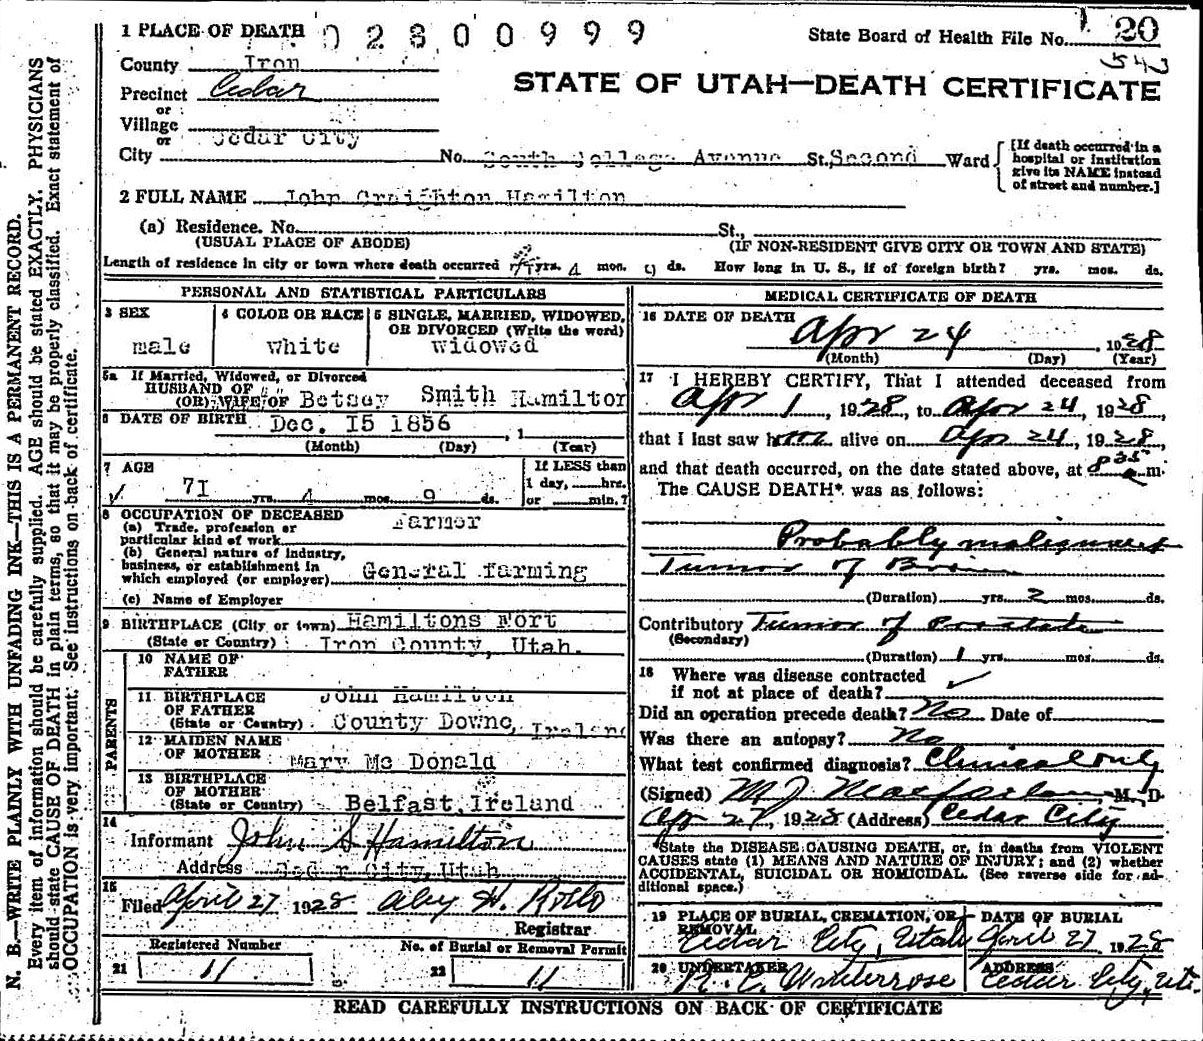 1 PLACE OF DEATH 02800999 State Board of Health File No. 20
543
County Iron
STATE OF UTAH—DEATH CERTIFICATE
Precinct Cedar
or
Village
or Cedar City
City No. South College Avenue St, Second Ward
[If death occurred in a hospital or institution give its NAME instead of street and number.]
2 FULL NAME John Creighton Hamilton
(a) Residence. No. St.,
(USUAL PLACE OF ABODE) (IF NON-RESIDENT GIVE CITY OR TOWN AND STATE)
Length of residence in city or town where death occurred yrs. 4 mos. 9 ds. How long in U. S., if of foreign birth? yrs. mos. ds.
PERSONAL AND STATISTICAL PARTICULARS
3 SEX 4 COLOR OR RACE 5 SINGLE, MARRIED, WIDOWED, OR DIVORCED (Write the word)
male white widowed
5a If Married, Widowed, or Divorced
HUSBAND OF
(OR) WIFE OF Betsey Smith Hamilton
6 DATE OF BIRTH Dec. I5 1856 , 1
(Month) (Day) (Year)
7 AGE If LESS than
7I yrs. 4 mos. 9 ds. 1 day, hrs.
or min.?
8 OCCUPATION OF DECEASED
(a) Trade, profession or particular kind of work Farmer
(b) General nature of industry,
business, or establishment in
which employed (or employer) General farming
(c) Name of Employer
9 BIRTHPLACE (City or town) Hamiltons Fort
(State or Country) Iron County, Utah.
PARENTS
10 NAME OF
FATHER John Hamilton
11 BIRTHPLACE
OF FATHER
(State or Country) County Downe, Ireland
12 MAIDEN NAME
OF MOTHER Mary Mc Donald
13 BIRTHPLACE
OF MOTHER
(State or Country) Belfast, Ireland
14
Informant John S Hamilton
Address Cedar City, Utah
15
Filed April 27 1928
Registrar
Registered Number No. of Burial or Removal Permit
21 11 22 11
MEDICAL CERTIFICATE OF DEATH
16 DATE OF DEATH
Apr 24 , 1928
(Month) (Day) (Year)
17 I HEREBY CERTIFY, That I attended deceased from
Apr 1, 1928, to Apr 24, 1928,
that I last saw him alive on Apr 24, 1928,
and that death occurred, on the date stated above, at 8 35 a m.
The CAUSE DEATH* was as follows:
Probably malignant
Tumor of Brain
(Duration) yrs. 2 mos. ds.
Contributory Tumor of Prostate
(Secondary)
(Duration) 1 yrs. mos. ds.
18 Where was disease contracted
if not at place of death?
Did an operation precede death? No Date of
Was there an autopsy? No
What test confirmed diagnosis? Clinical only
(Signed) M J Macfarlane, M. D.
Apr 27, 1928 (Address) Cedar City
*State the DISEASE CAUSING DEATH, or, in deaths from VIOLENT
CAUSES state (1) MEANS AND NATURE OF INJURY; and (2) whether
ACCIDENTAL, SUICIDAL OR HOMICIDAL. (See reverse side for ad-
ditional space.)
19 PLACE OF BURIAL, CREMATION, OR REMOVAL DATE OF BURIAL
Cedar City, Utah April 27 1928
20 UNDERTAKER ADDRESS
Winterrose Cedar City, Ut.
READ CAREFULLY INSTRUCTIONS ON BACK OF CERTIFICATE
N. B.—WRITE PLAINLY WITH UNFADING INK—THIS IS A PERMANENT RECORD.
Every item of information should be carefully supplied. AGE should be stated EXACTLY. PHYSICIANS
should state CAUSE OF DEATH in plain terms, so that it may be properly classified. Exact statement of
OCCUPATION is very important. See instructions on back of certificate.